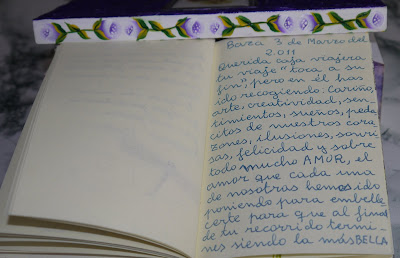 Baza 3 de Marzo del
2.011
Querida caja viajera
tu viaje "toca a su
fin", pero en él has
ido recogiendo: Cariño,
arte, creatividad, sen-
timientos, sueños, peda-
citos de nuestros cora-
zones, ilusiones, sonri-
sas, felicidad y sobre
todo mucho AMOR, el
amor que cada una
de nosotras hemos ido
poniendo para embelle-
certe para que al final
de tu recorrido termi-
nes siendo la más BELLA